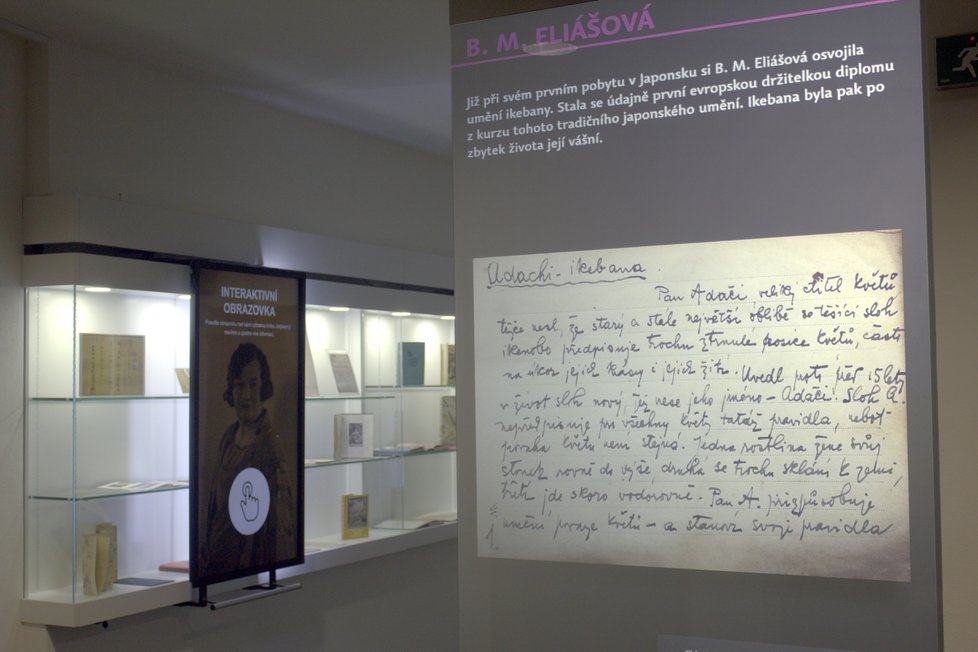 B. M. ELIÁŠOVÁ
Již při svém prvním pobytu v Japonsku si B. M. Eliášová osvojila
umění ikebany. Stala se údajně první evropskou držitelkou diplomu
z kurzu tohoto tradičního japonského umění. Ikebana byla pak po
zbytek života její vášní.
Adachi - ikebana.
Pan Adači, veliký ctitel květů
těžce nesl, že starý a stále největší oblibě se těšící sloh
ikenobo předpisuje trochu ztrnulé posice květů, často
na úkor jejich krásy i jejich žití. Uvedl proto před 15 lety
v život sloh nový, jež nese jeho jméno - Adači. Sloh A.
nepředpisuje pro všechny květy tatáž pravidla, neboť
povaha květů není stejná. Jedna rostlina žene svůj
stonek rovně do výše, druhá se trochu sklání k zemi,
třetí jde skoro vodorovně. Pan A. přizpůsobuje
umění povaze květů - a stanoví svoje pravidla
INTERAKTIVNÍ
OBRAZOVKA